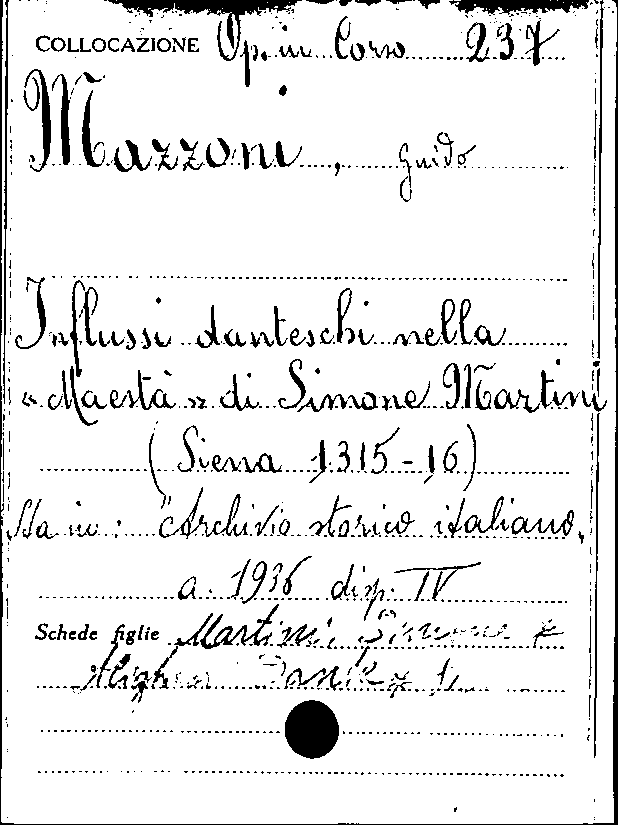 COLLOCAZIONE Op. in Corso 237
Mazzoni, Guido
Influssi danteschi nella
«Maestà» di Simone Martini
(Siena 1315-16)
Sta in: "Archivio storico italiano,
a. 1936 disp. IV
Schede figlie Martini, Simone
Alighieri Dante